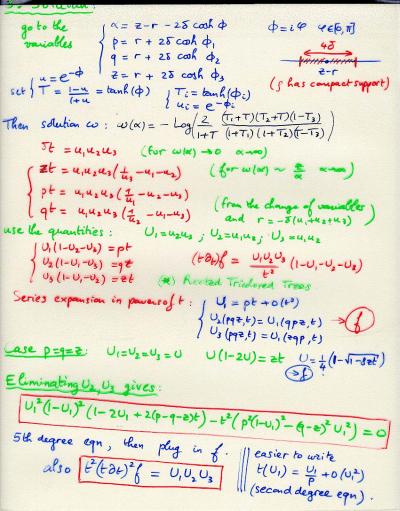 go to the variables
α = z-r-2δ cosh Φ
p = r + 2δ cosh Φ₁
q = r + 2δ cosh Φ₂
z = r + 2δ cosh Φ₃
Φ = iφ φ∈[0,π]
4δ
z-r
(ρ has compact support)
set { u = e^-Φ
T = (1-u)/(1+u) = tanh(Φ)
T_i = tanh(Φ_i)
u_i = e^-Φ_i
Then solution ω: ω(α) = -Log( 2/(1+T) (T₁+T)(T₂+T)(1-T₃)/((1+T₁)(1+T₂)(T-T₃)) )
δt = u₁u₂u₃ (for ω(α)→0 α→∞)
zt = u₁u₂u₃(1/u₃ -u₁-u₂) (for ω(α) ~ z/α α→∞)
pt = u₁u₂u₃(1/u₁ -u₂-u₃)
qt = u₁u₂u₃(1/u₂ -u₁-u₃)
(from the change of variables and r = -δ(u₁+u₂+u₃))
use the quantities: U₁=u₂u₃ ; U₂=u₁u₃ ; U₃=u₁u₂
U₁(1-U₂-U₃) = pt
U₂(1-U₁-U₃) = qt
U₃(1-U₁-U₂) = zt
(t∂t)f = U₁U₂U₃/t² (1-U₁-U₂-U₃)
(*) Rooted Tricolored Trees
Series expansion in powers of t:
U₁ = pt + O(t²)
U₂(pqz,t) = U₁(qpz,t)
U₃(pqz,t) = U₁(zqp,t)
→ f
Case p=q=z: U₁=U₂=U₃=U U(1-2U) = zt U = 1/4(1-√1-8zt)
→ f
Eliminating U₂,U₃ gives:
U₁²(1-U₁)²(1-2U₁+2(p-q-z)t) - t²(p²(1-U₁)² - (q-z)²U₁²) = 0
5th degree eqn, then plug in f.
also t²(t∂t)²f = U₁U₂U₃
easier to write
t(U₁) = U₁/p + O(U₁²)
(second degree eqn).